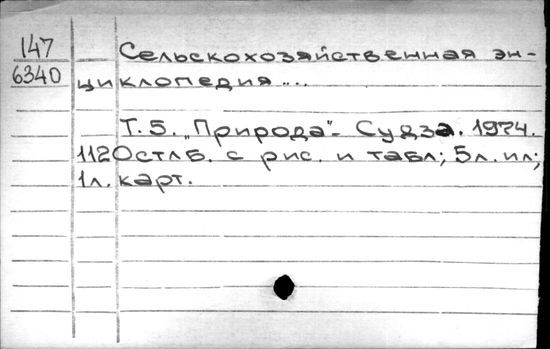 147
6340
Сельскохозяйственная эн-
циклопедия ...
Т. 5. „Природа"- Судза. 1974.
1120стлб. с рис. и табл; 5л. ил;
1л. карт.